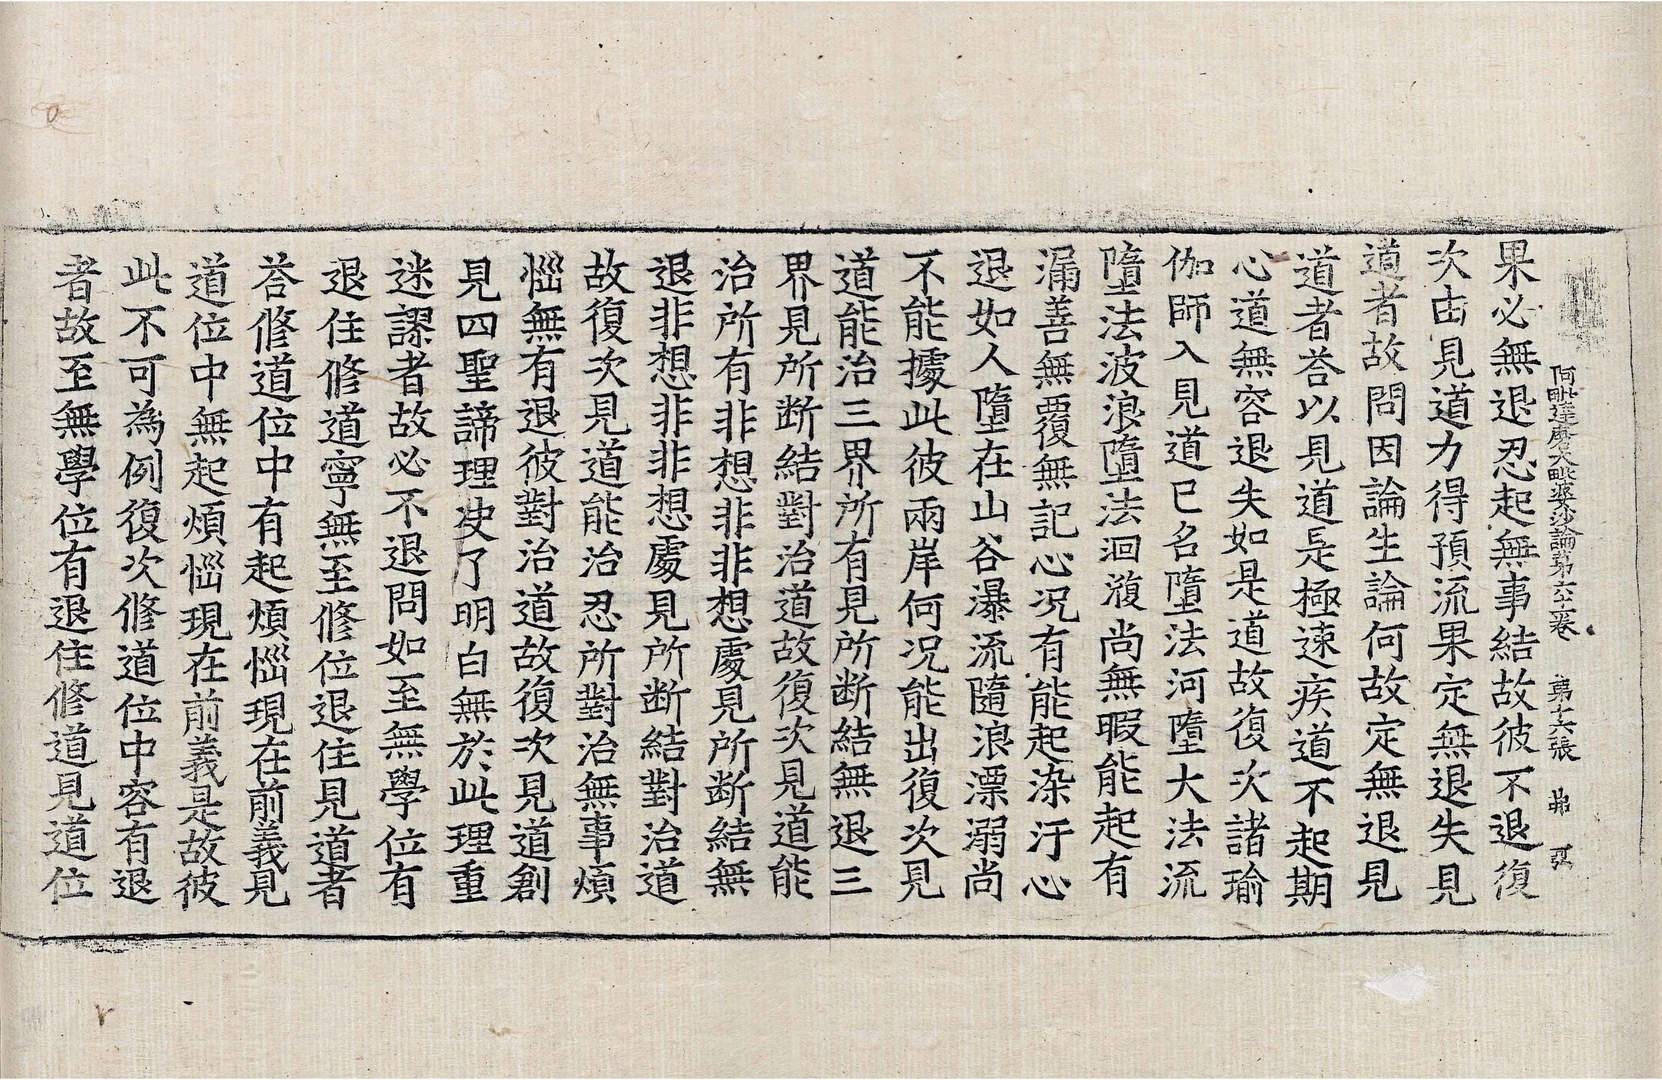 阿毗達磨大毗婆沙論第六十一卷 第十六張 弗 弱
果必無退忍起無事結故彼不退復
次由見道力得預流果定無退失見
道者故問因論生論何故定無退見
道者荅以見道是極速疾道不起期
心道無容退失如是道故復次諸瑜
伽師入見道已名墮法河墮大法流
墮法波浪墮法洄澓尚無暇能起有
漏善無覆無記心况有能起染汙心
退如人墮在山谷瀑流隨浪漂溺尚
不能據此彼兩岸何况能出復次見
道能治三界所有見所断結無退三
界見所断結對治道故復次見道能
治所有非想非非想處見所断結無
退非想非非想處見所断結對治道
故復次見道能治忍所對治無事煩
惱無有退彼對治道故復次見道創
見四聖諦理決了明白無於此理重
迷謬者故必不退問如至無學位有
退住修道寧無至修位退住見道者
荅修道位中有起煩惱現在前義見
道位中無起煩惱現在前義是故彼
此不可為例復次修道位中容有退
者故至無學位有退住修道見道位